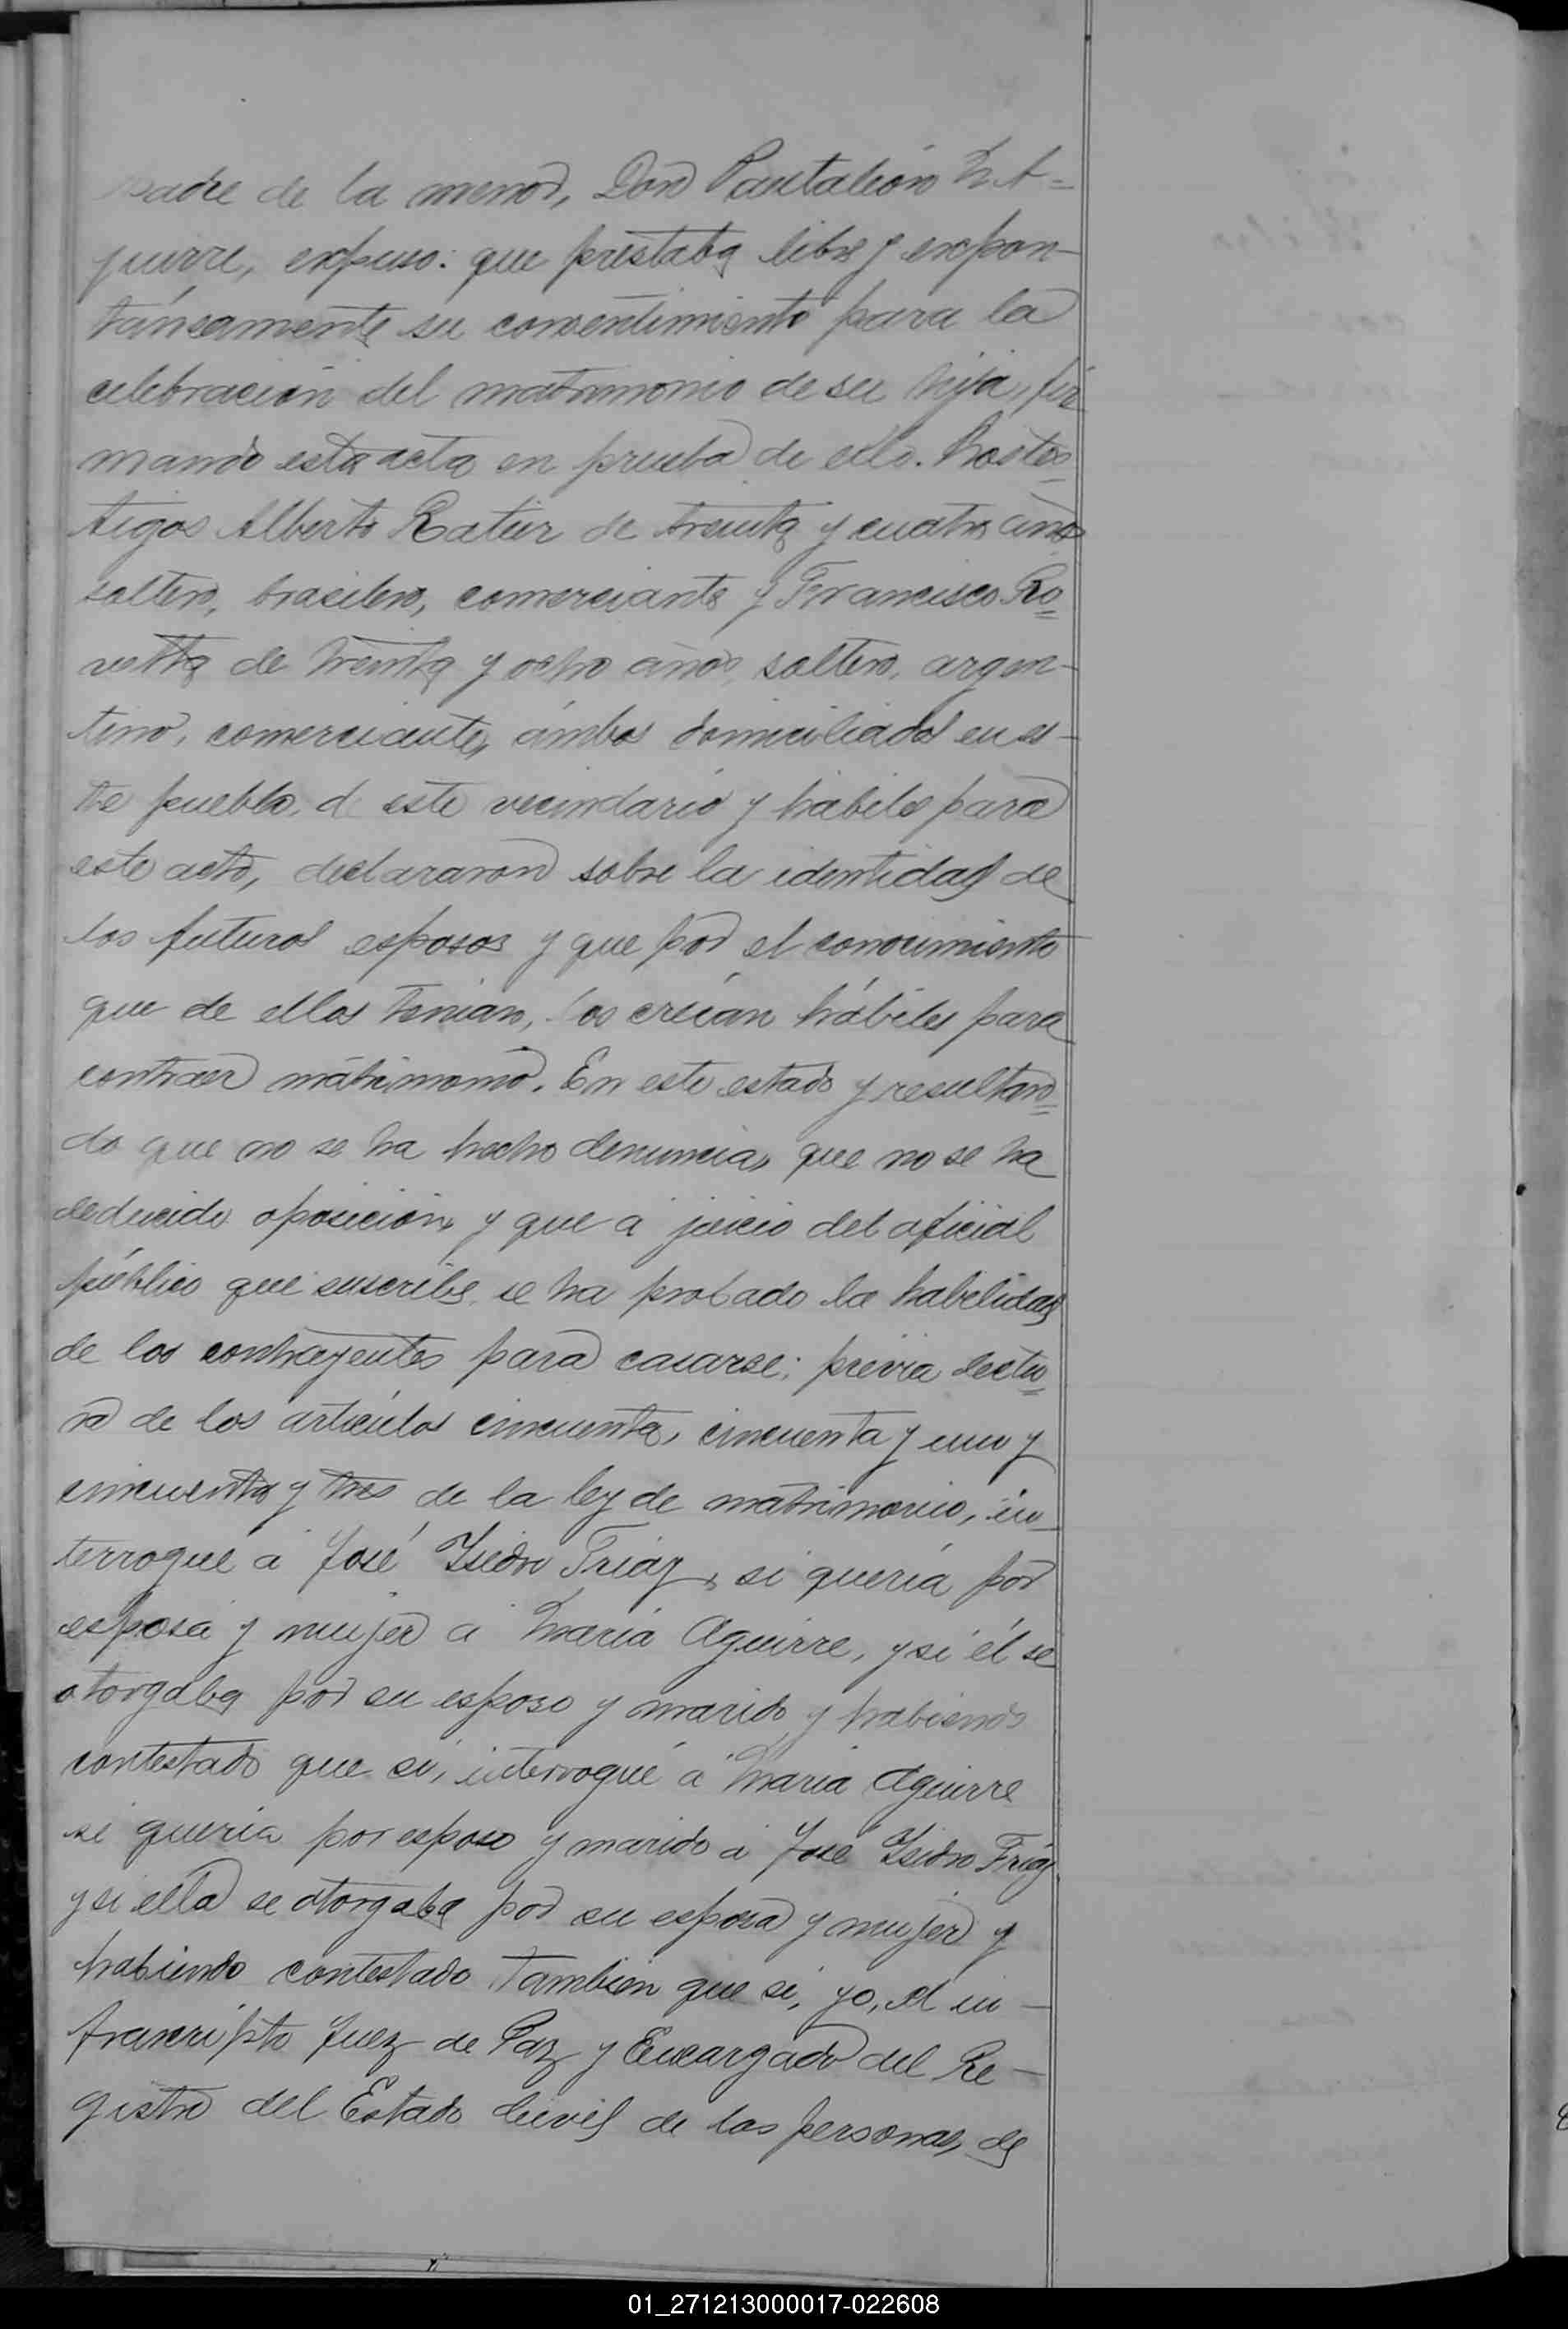 padre de la menor, Don Pantaleón M. A=
guirre, expuso: que prestaba libre y expon-
táneamente su consentimiento para la
celebración del matrimonio de su hija, fir
mando esta acta en prueba de ello. Los tes=
tigos Alberto Ratier de treinta y cuatro años
soltero, brasilero, comerciante y Francisco Ro=
vetta de treinta y ocho años, soltero, argen-
tino, comerciante, ámbos domiciliados en es-
te pueblo, de este vecindario y hábiles para
este acto, declararon sobre la identidad de
los futuros esposos y que por el conocimiento
que de ellos tenian, los creían hábiles para
contraer matrimonio. En este estado y resultan=
do que no se ha hecho denuncia, que no se ha
deducido oposición y que a juicio del oficial
público que suscribe se ha probado la habilidad
de los contrayentes para casarse; previa lectu=
ra de los artículos cincuenta, cincuenta y uno y
cincuenta y tres de la ley de matrimonio, in-
terrogué a José Ysidro Friaz, si quería por
esposa y mujer a María Aguirre, y si él se
otorgaba por su esposo y marido y habiendo
contestado que sí, interrogué a María Aguirre
si quería por esposo y marido a José Ysidro Friaz
y si ella se otorgaba por su esposa y mujer y
habiendo contestado tambien que si, yo, el in-
franscripto Juez de Paz y Encargado del Re-
gistro del Estado Civil de las personas, de
01_271213000017-022608